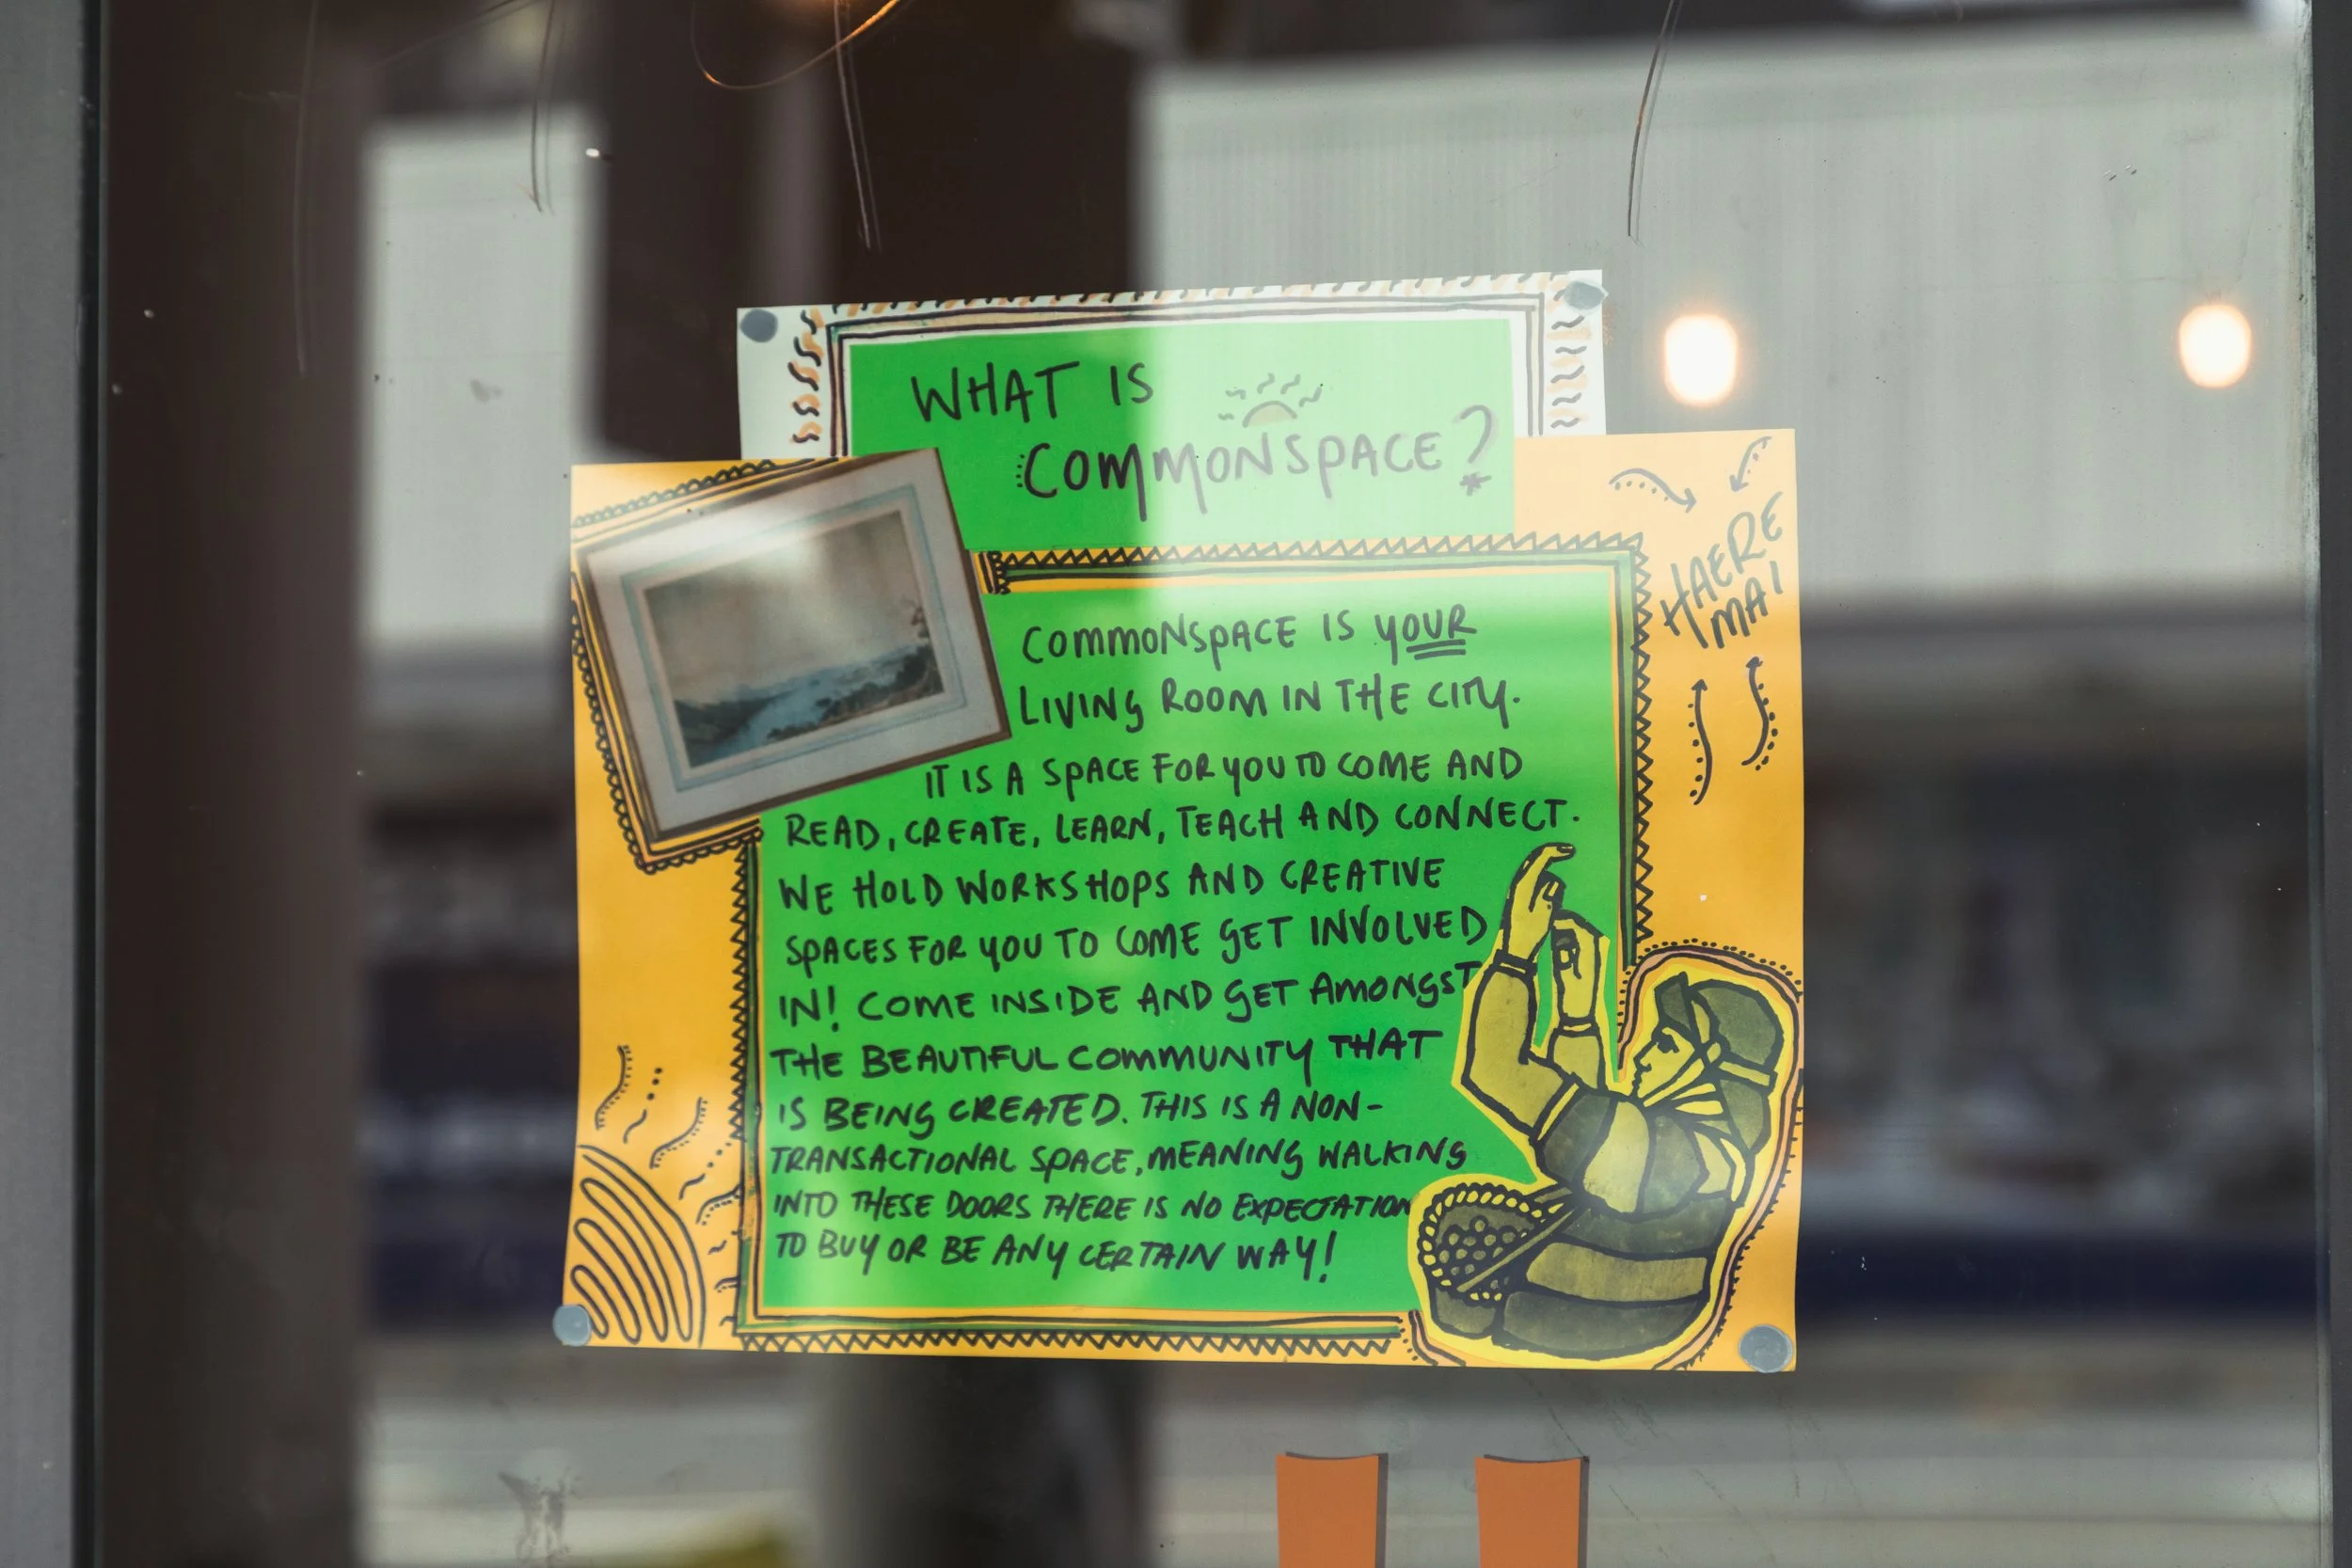 WHAT IS
COMMONSPACE?
HAERE
MAI
COMMONSPACE IS YOUR
LIVING ROOM IN THE CITY.
IT IS A SPACE FOR YOU TO COME AND
READ, CREATE, LEARN, TEACH AND CONNECT.
WE HOLD WORKSHOPS AND CREATIVE
SPACES FOR YOU TO COME GET INVOLVED
IN! COME INSIDE AND GET AMONGST
THE BEAUTIFUL COMMUNITY THAT
IS BEING CREATED. THIS IS A NON-
TRANSACTIONAL SPACE, MEANING WALKING
INTO THESE DOORS THERE IS NO EXPECTATION
TO BUY OR BE ANY CERTAIN WAY!